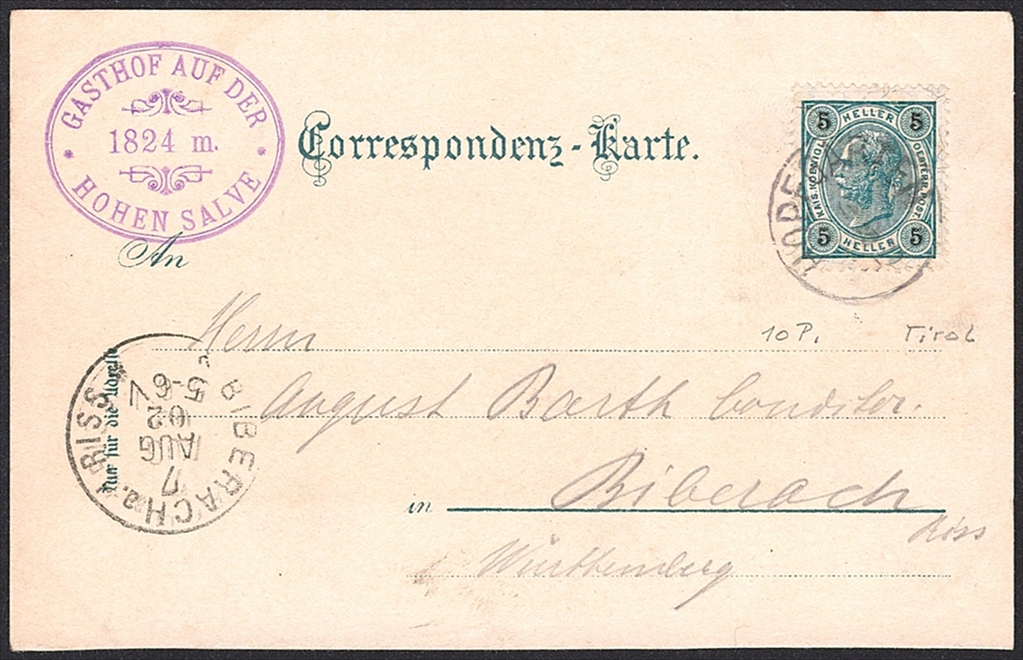 GASTHOF AUF DER
1824 m.
HOHEN SALVE
Correspondenz-Karte.
5 HELLER 5
KAIS. KÖNIGL. OESTERR. POST.
5 HELLER 5
An
10 P. Tirol
Herrn
August Barth Conditor.
in Biberach
Riss
Württemberg
Nur für die Adresse
BIBERACH a. RISS
5-6
02
AUG